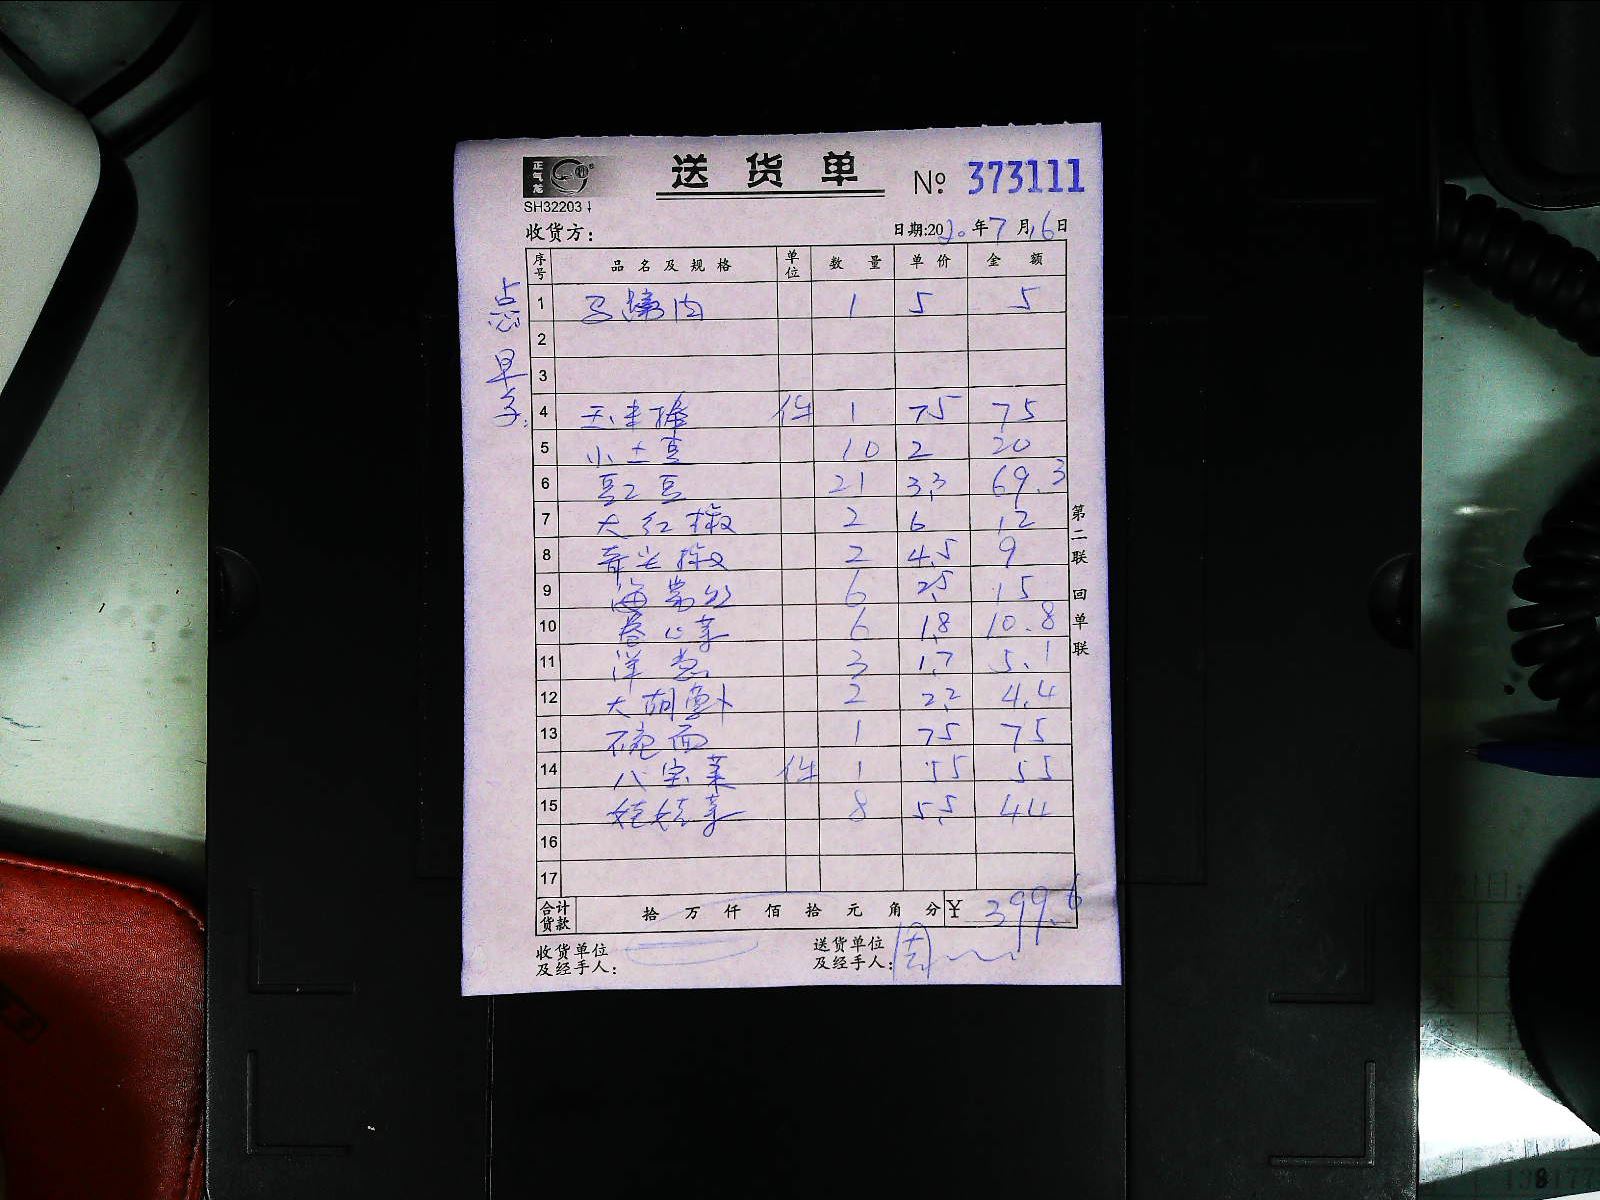 正气龙
送货单 № 373111
SH32203
收货方： 日期:2020年7月16日
序号 品名及规格 单位 数量 单价 金额
点心早餐:
1 马蹄肉 1 5 5
2
3
4 玉米棒 件 1 75 75
5 小土豆 10 2 20
6 豇豆 21 3.3 69.3
7 大红椒 2 6 12
8 2 4.5 9
9 海带丝 6 2.5 15
10 卷心菜 6 1.8 10.8
11 洋葱 3 1.7 5.1
12 大胡萝卜 2 2.2 4.4
13 碗面 1 75 75
14 八宝菜 件 1 55 55
15 娃娃菜 8 5.5 44
16
17
合计货款 拾万仟佰拾元角分 ¥ 399.6
收货单位 送货单位
及经手人： 及经手人：
第二联 回单联